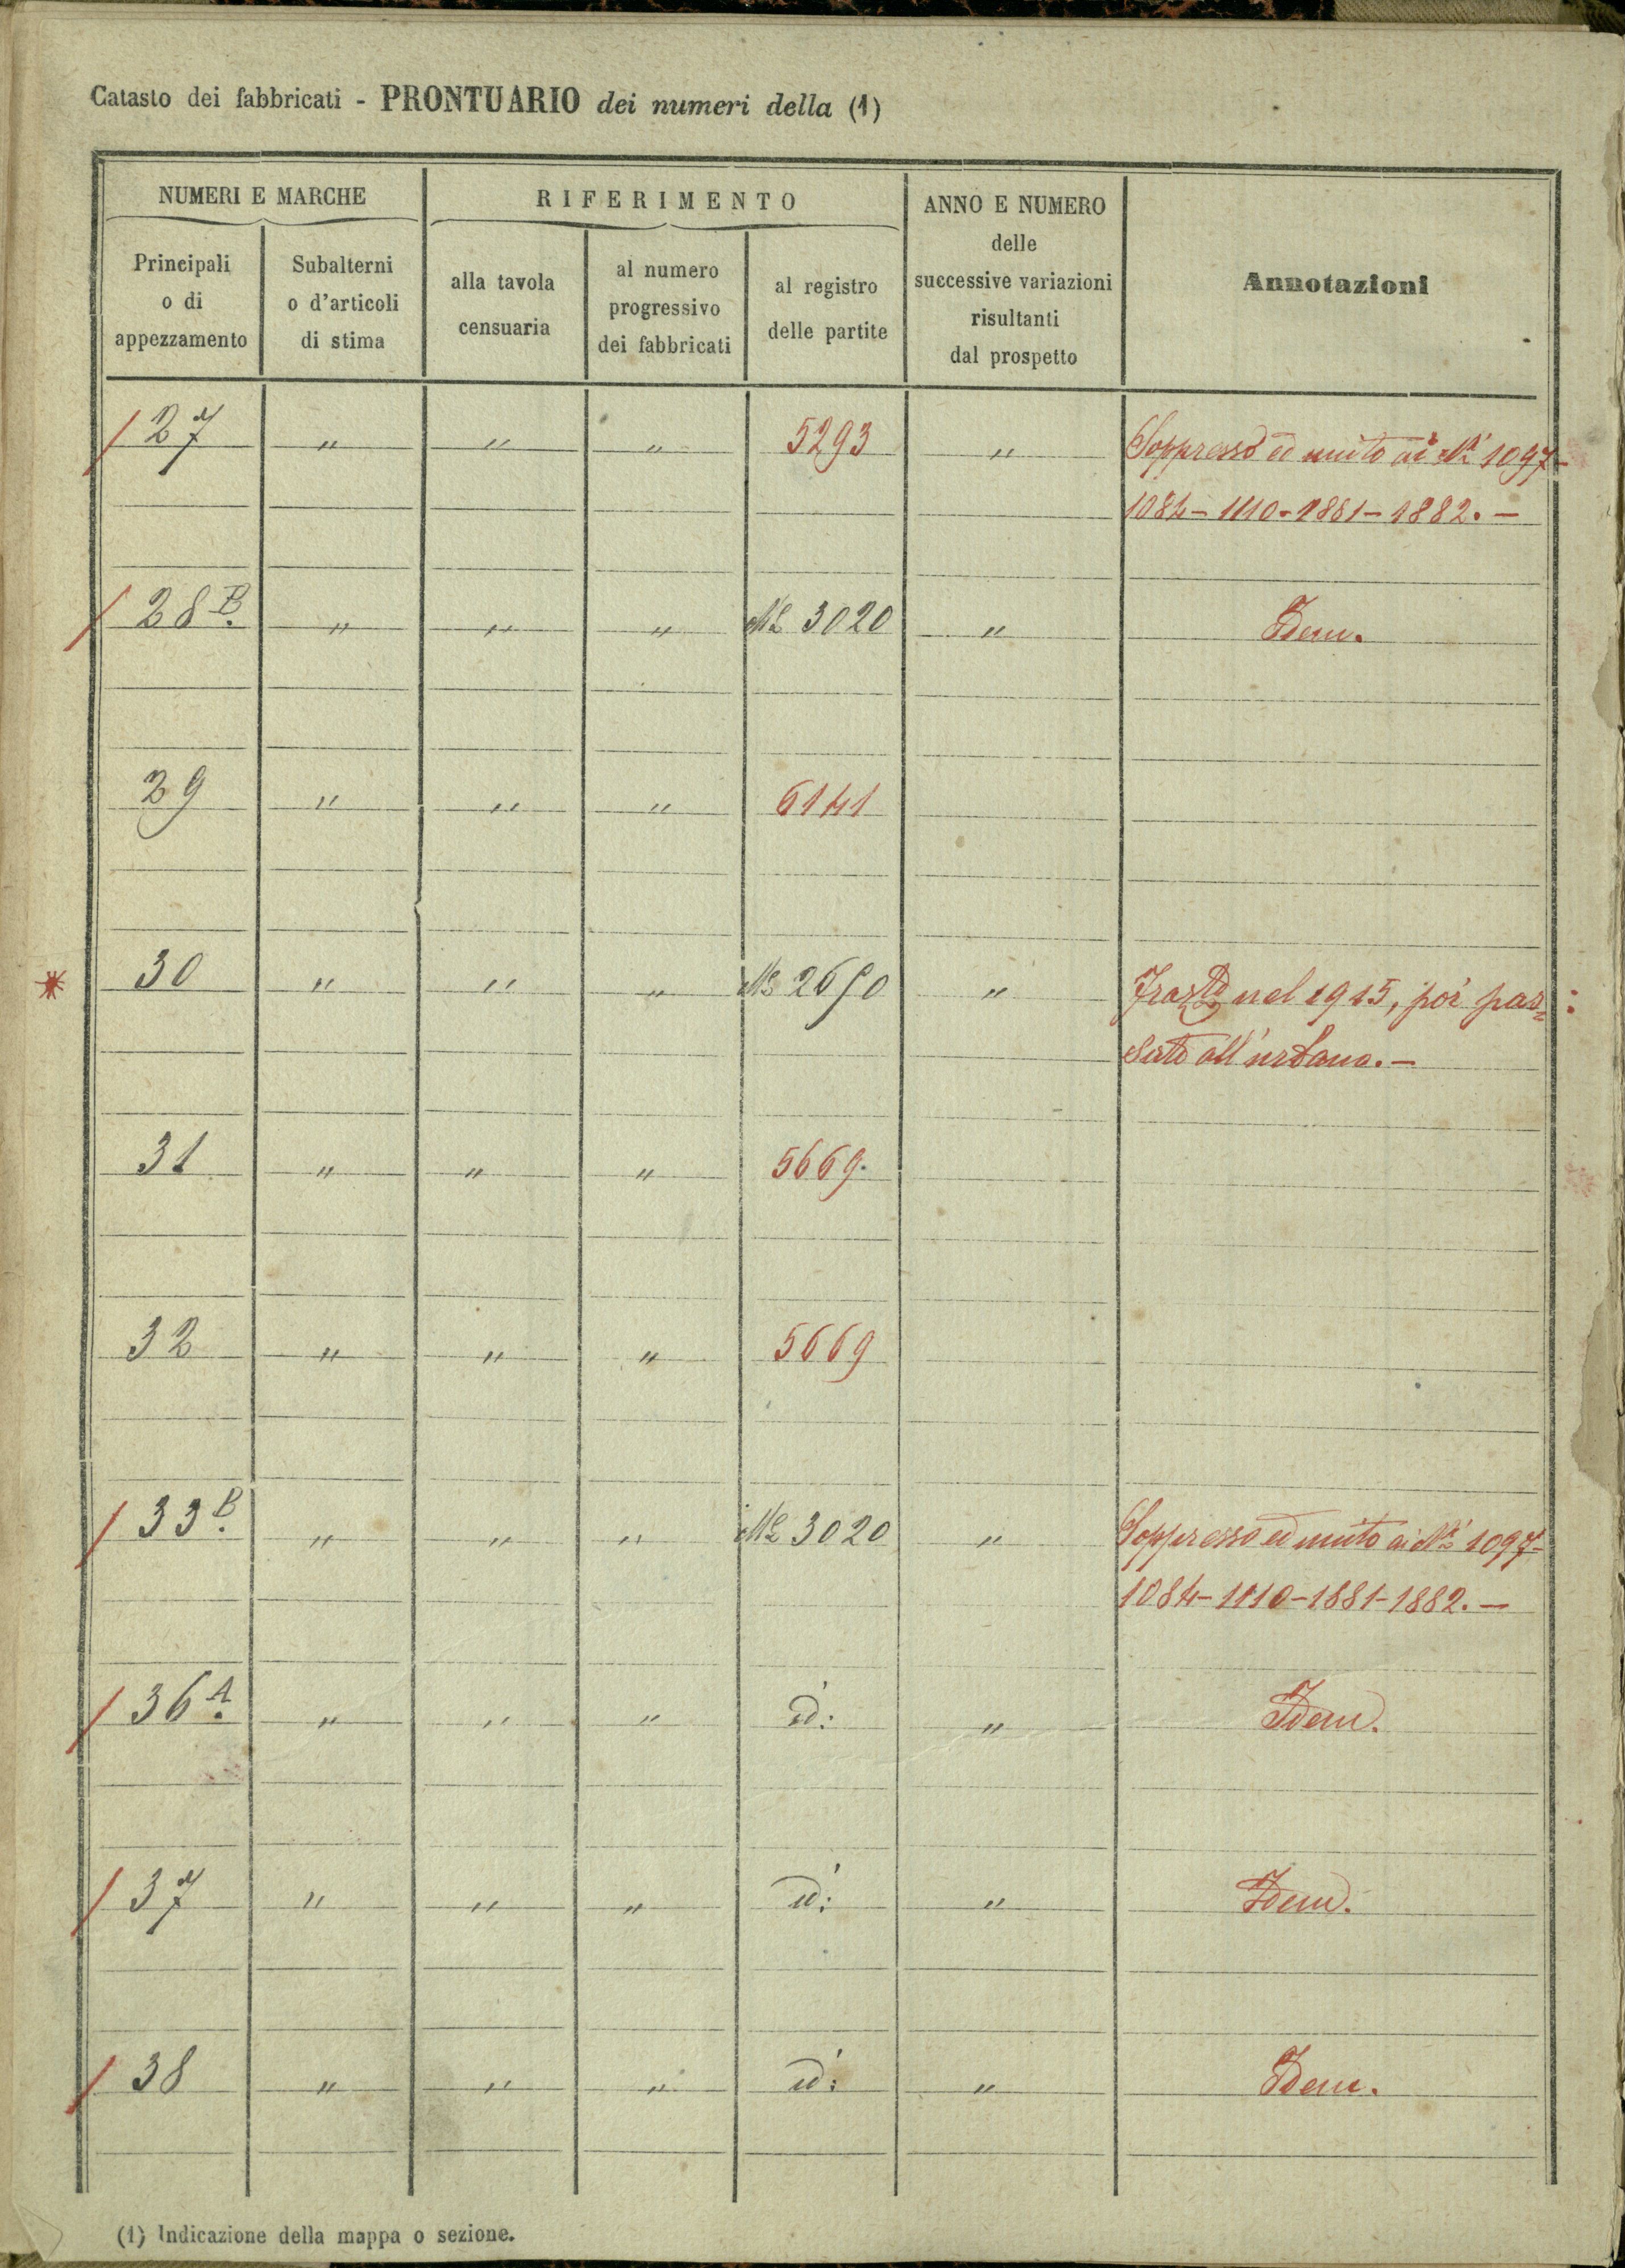 Catasto dei fabbricati - PRONTUARIO dei numeri della (1)
NUMERI E MARCHE
RIFERIMENTO
ANNO E NUMERO
delle
successive variazioni
risultanti
dal prospetto
Annotazioni
Principali
o di
appezzamento
Subalterni
o d'articoli
di stima
alla tavola
censuaria
al numero
progressivo
dei fabbricati
al registro
delle partite
/ 27 " " " 5293 " Soppresso ed unito ai Ni 1097-
1084-1110-1881-1882.-
/ 28 B. " " " No 3020 " Idem.
29 " " " 6141
* 30 " " " No 2690 " nel 1915, poi pas=
sato all'urbano.-
31 " " " 5669.
32 " " " 5669
/ 33 B. " " " No 3020 " Soppresso ed unito ai Ni 1097-
1084-1110-1881-1882.-
/ 36 A. " " " id: " Idem.
/ 37 " " " id: " Idem.
/ 38 " " " id: " Idem.
(1) Indicazione della mappa o sezione.